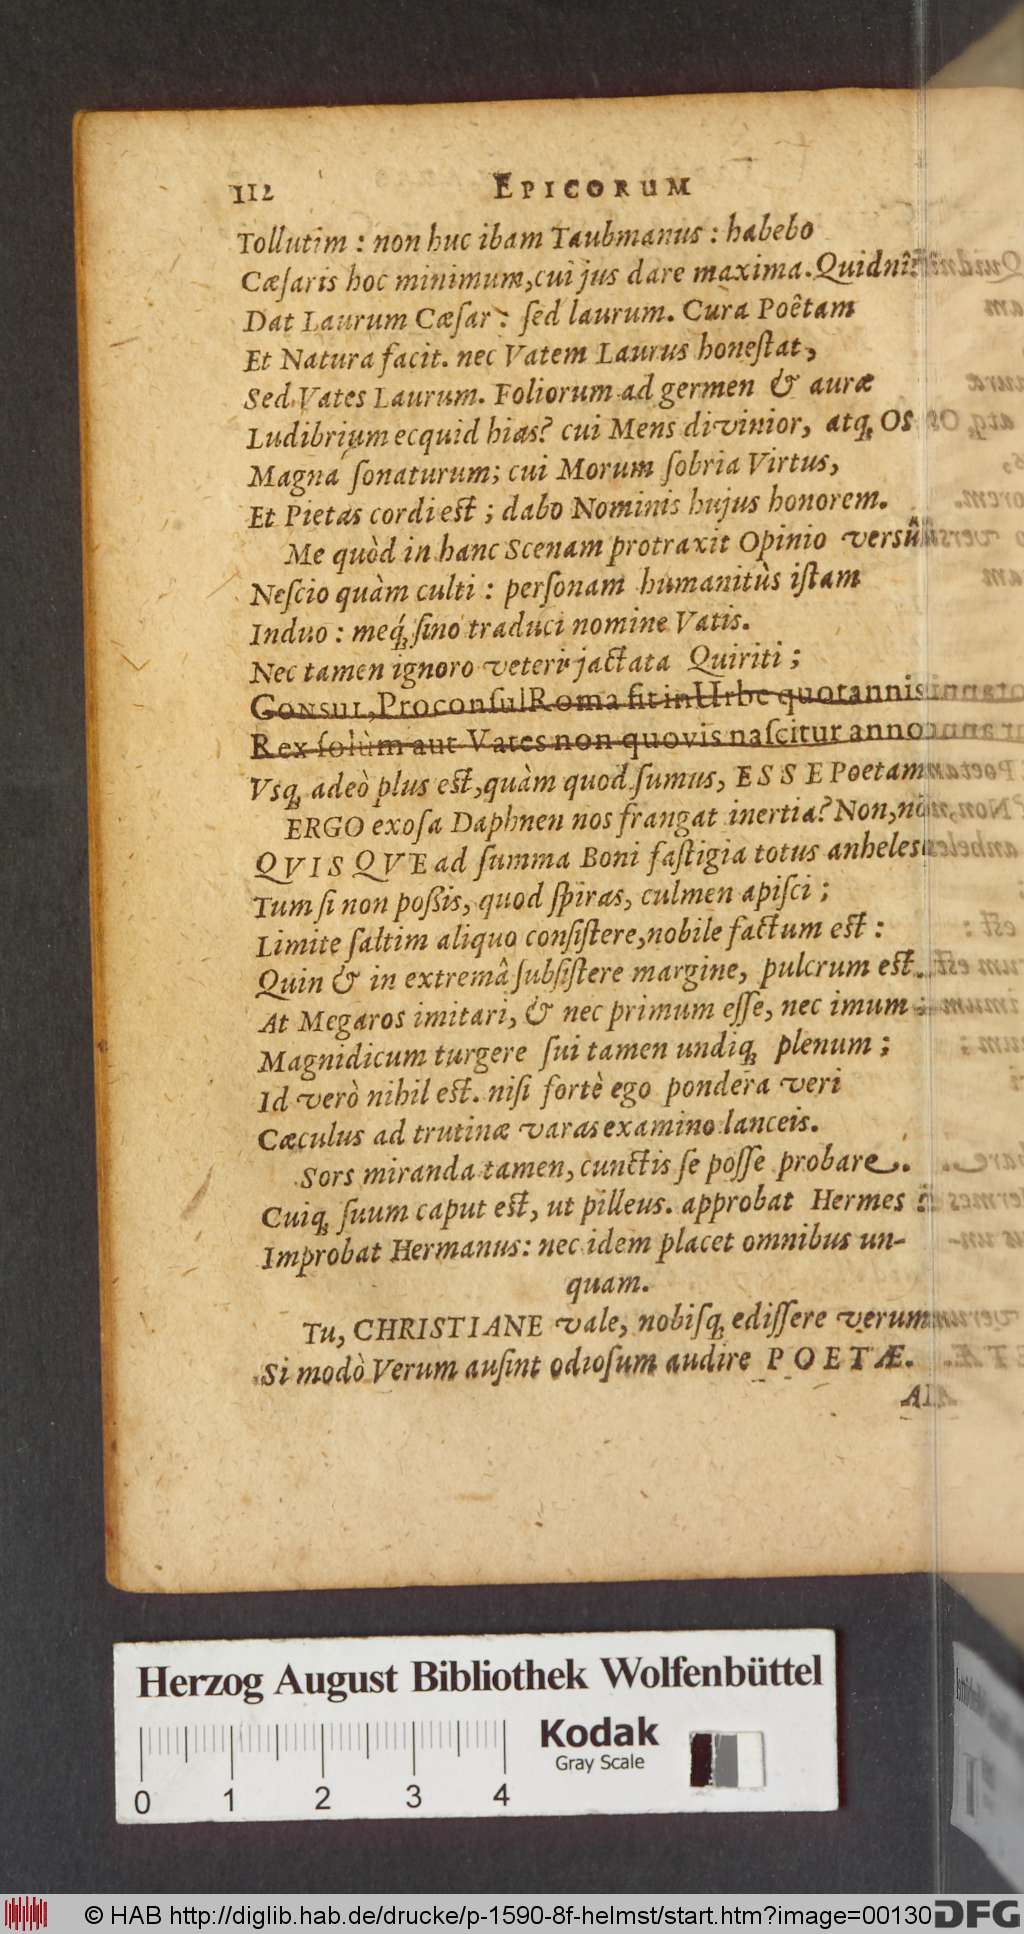 112 EPICORUM
Tollutim : non huc ibam Taubmanus : habebo
Cæſaris hoc minimum, cui jus dare maxima. Quidnî?
Dat Laurum Cæſar : ſed laurum. Cura Poêtam
Et Natura facit. nec Vatem Laurus honeſtat,
Sed Vates Laurum. Foliorum ad germen & auræ
Ludibrium ecquid hias? cui Mens divinior, atq; Os
Magna ſonaturum; cui Morum ſobria Virtus,
Et Pietas cordi est ; dabo Nominis hujus honorem.
Me quòd in hanc Scenam protraxit Opinio versû
Neſcio quàm culti : perſonam humanitùs iſtam
Induo : meq́; ſino traduci nomine Vatis.
Nec tamen ignoro veteri jactata Quiriti ;
CONSUL, Proconſul Roma fit in Urbe quotannis
Rex ſolùm aut Vates non quovis naſcitur anno
Vsq; adeò plus est, quàm quod ſumus, ESSE Poetam
ERGO exoſa Daphnen nos frangat inertia? Non, nõ
QVISQVE ad ſumma Boni faſtigia totus anheles
Tum ſi non poßis, quod ſpiras, culmen apiſci ;
Limite ſaltim aliquo conſiſtere, nobile factum est :
Quin & in extremâ ſubſiſtere margine, pulcrum est.
At Megaros imitari, & nec primum eſſe, nec imum :
Magnidicum turgere ſui tamen undiq; plenum ;
Id verò nihil est. niſi fortè ego pondera veri
Cæculus ad trutinæ varas examino lanceis.
Sors miranda tamen, cunctis ſe poſſe probare.
Cuiq; ſuum caput est, ut pilleus. approbat Hermes :
Improbat Hermanus: nec idem placet omnibus un-
quam.
Tu, CHRISTIANE vale, nobiſq; ediſſere verum
Si modò Verum auſint odioſum audire POETÆ.
Herzog August Bibliothek Wolfenbüttel
Kodak
Gray Scale
0 1 2 3 4
© HAB http://diglib.hab.de/drucke/p-1590-8f-helmst/start.htm?image=00130
DFG